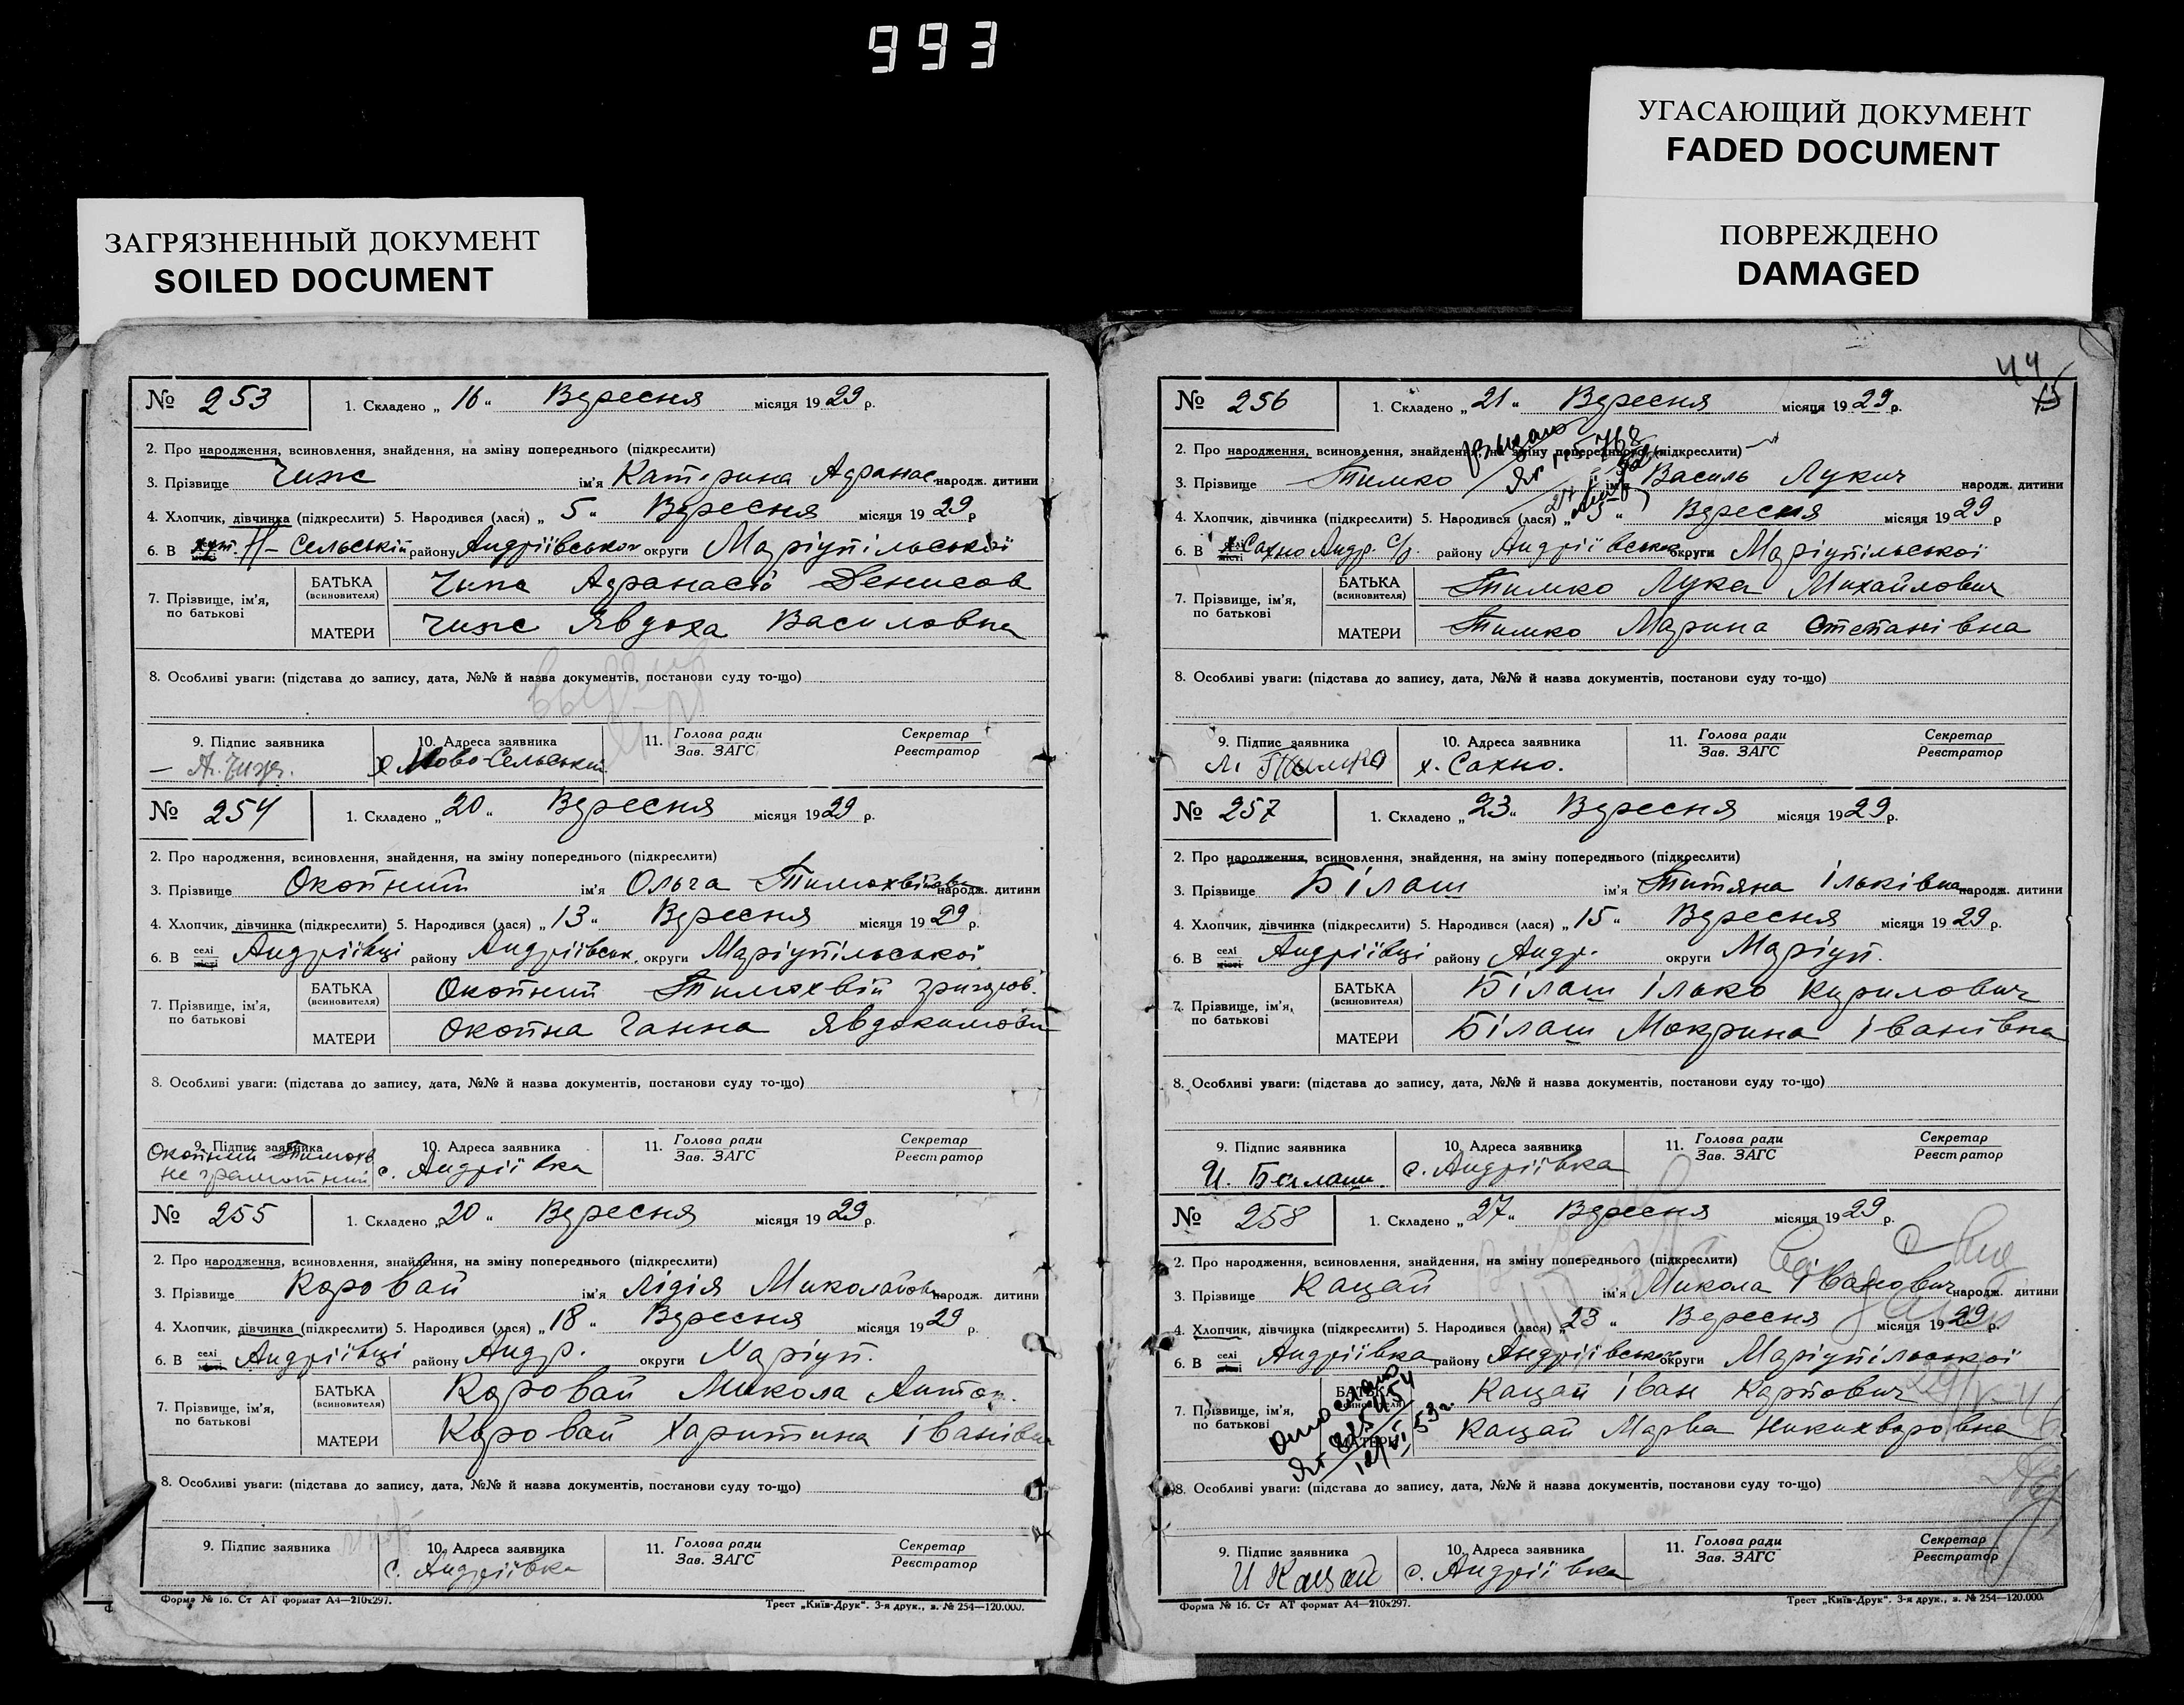 993
УГАСАЮЩИЙ ДОКУМЕНТ
FADED DOCUMENT
ПОВРЕЖДЕНО
DAMAGED
ЗАГРЯЗНЕННЫЙ ДОКУМЕНТ
SOILED DOCUMENT
№ 253 1. Складено „ 16 “ Вересня місяця 1929 р.
2. Про народження, всиновлення, знайдення, на зміну попереднього (підкреслити)
3. Прізвище Чиж ім'я Катерина Афанас. народж. дитини
4. Хлопчик, дівчинка (підкреслити) 5. Народився (лася) „ 5 “ Вересня місяця 1929 р
6. В хут. Н-Сельській району Андріївськой округи Маріупільської
7. Прізвище, ім'я, по батькові
БАТЬКА (всиновителя) Чиж Афанасій Денисов
МАТЕРИ Чиж Явдоха Василовна
8. Особливі уваги: (підстава до запису, дата, №№ й назва документів, постанови суду то-що)
9. Підпис заявника 10. Адреса заявника 11. Голова ради Зав. ЗАГС Секретар Реєстратор
А. Чиж. х Ново-Сельський
№ 254 1. Складено „ 20 “ Вересня місяця 1929 р.
2. Про народження, всиновлення, знайдення, на зміну попереднього (підкреслити)
3. Прізвище Окопний ім'я Ольга Тимохвіївна народж. дитини
4. Хлопчик, дівчинка (підкреслити) 5. Народився (лася) „ 13 “ Вересня місяця 1929 р.
6. В селі місті Андріївці району Андріївськ. округи Маріупільської
7. Прізвище, ім'я, по батькові
БАТЬКА (всиновителя) Окопний Тимохвій Григоров.
МАТЕРИ Окопна Ганна Явдокимовн
8. Особливі уваги: (підстава до запису, дата, №№ й назва документів, постанови суду то-що)
9. Підпис заявника 10. Адреса заявника 11. Голова ради Зав. ЗАГС Секретар Реєстратор
Окопний Тимохв не грамотний с. Андріївка
№ 255 1. Складено „ 20 “ Вересня місяця 1929 р.
2. Про народження, всиновлення, знайдення, на зміну попереднього (підкреслити)
3. Прізвище Коровай ім'я Лідія Миколаївн народж. дитини
4. Хлопчик, дівчинка (підкреслити) 5. Народився (лася) „ 18 “ Вересня місяця 1929 р.
6. В селі місті Андріївці району Андр. округи Маріуп.
7. Прізвище, ім'я, по батькові
БАТЬКА (всиновителя) Коровай Микола Антон.
МАТЕРИ Коровай Харитина Іванівна
8. Особливі уваги: (підстава до запису, дата, №№ й назва документів, постанови суду то-що)
9. Підпис заявника 10. Адреса заявника 11. Голова ради Зав. ЗАГС Секретар Реєстратор
с. Андріївка
Форма № 16. Ст АТ формат А4—210х297. Трест „Київ-Друк“. 3-я друк., з. № 254—120.000.
44
№ 256 1. Складено „ 21 “ Вересня місяця 1929 р.
2. Про народження, всиновлення, знайдення, на зміну попереднього (підкреслити)
3. Прізвище Тимко ім'я Василь Лукич народж. дитини
4. Хлопчик, дівчинка (підкреслити) 5. Народився (лася) „ 5 “ Вересня місяця 1929 р
6. В х Сахно Андр. с/р. району Андріївськой округи Маріупільської
7. Прізвище, ім'я, по батькові
БАТЬКА (всиновителя) Тимко Лука Михайлович
МАТЕРИ Тимко Марина Степанівна
8. Особливі уваги: (підстава до запису, дата, №№ й назва документів, постанови суду то-що)
9. Підпис заявника 10. Адреса заявника 11. Голова ради Зав. ЗАГС Секретар Реєстратор
Л. Тимко х. Сахно.
№ 257 1. Складено „ 23 “ Вересня місяця 1929 р.
2. Про народження, всиновлення, знайдення, на зміну попереднього (підкреслити)
3. Прізвище Білаш ім'я Титяна Ільківна народж. дитини
4. Хлопчик, дівчинка (підкреслити) 5. Народився (лася) „ 15 “ Вересня місяця 1929 р.
6. В селі місті Андріївці району Андр. округи Маріуп.
7. Прізвище, ім'я, по батькові
БАТЬКА (всиновителя) Білаш Ілько Курилович
МАТЕРИ Білаш Мокрина Іванівна
8. Особливі уваги: (підстава до запису, дата, №№ й назва документів, постанови суду то-що)
9. Підпис заявника 10. Адреса заявника 11. Голова ради Зав. ЗАГС Секретар Реєстратор
И. Белаш. с. Андріївка
№ 258 1. Складено „ 27 “ Вересня місяця 1929 р.
2. Про народження, всиновлення, знайдення, на зміну попереднього (підкреслити)
3. Прізвище Кацай ім'я Микола Іванович народж. дитини
4. Хлопчик, дівчинка (підкреслити) 5. Народився (лася) „ 23 “ Вересня місяця 1929 р.
6. В селі місті Андріївка району Андріївськой округи Маріупільської
7. Прізвище, ім'я, по батькові
БАТЬКА (всиновителя) Кацай Іван Карпович
МАТЕРИ Кацай Марва Никихворовна
8. Особливі уваги: (підстава до запису, дата, №№ й назва документів, постанови суду то-що)
9. Підпис заявника 10. Адреса заявника 11. Голова ради Зав. ЗАГС Секретар Реєстратор
И Кацай с. Андріївка
Форма № 16. Ст АТ формат А4—210х297. Трест „Київ-Друк“. 3-я друк., з. № 254—120.000.